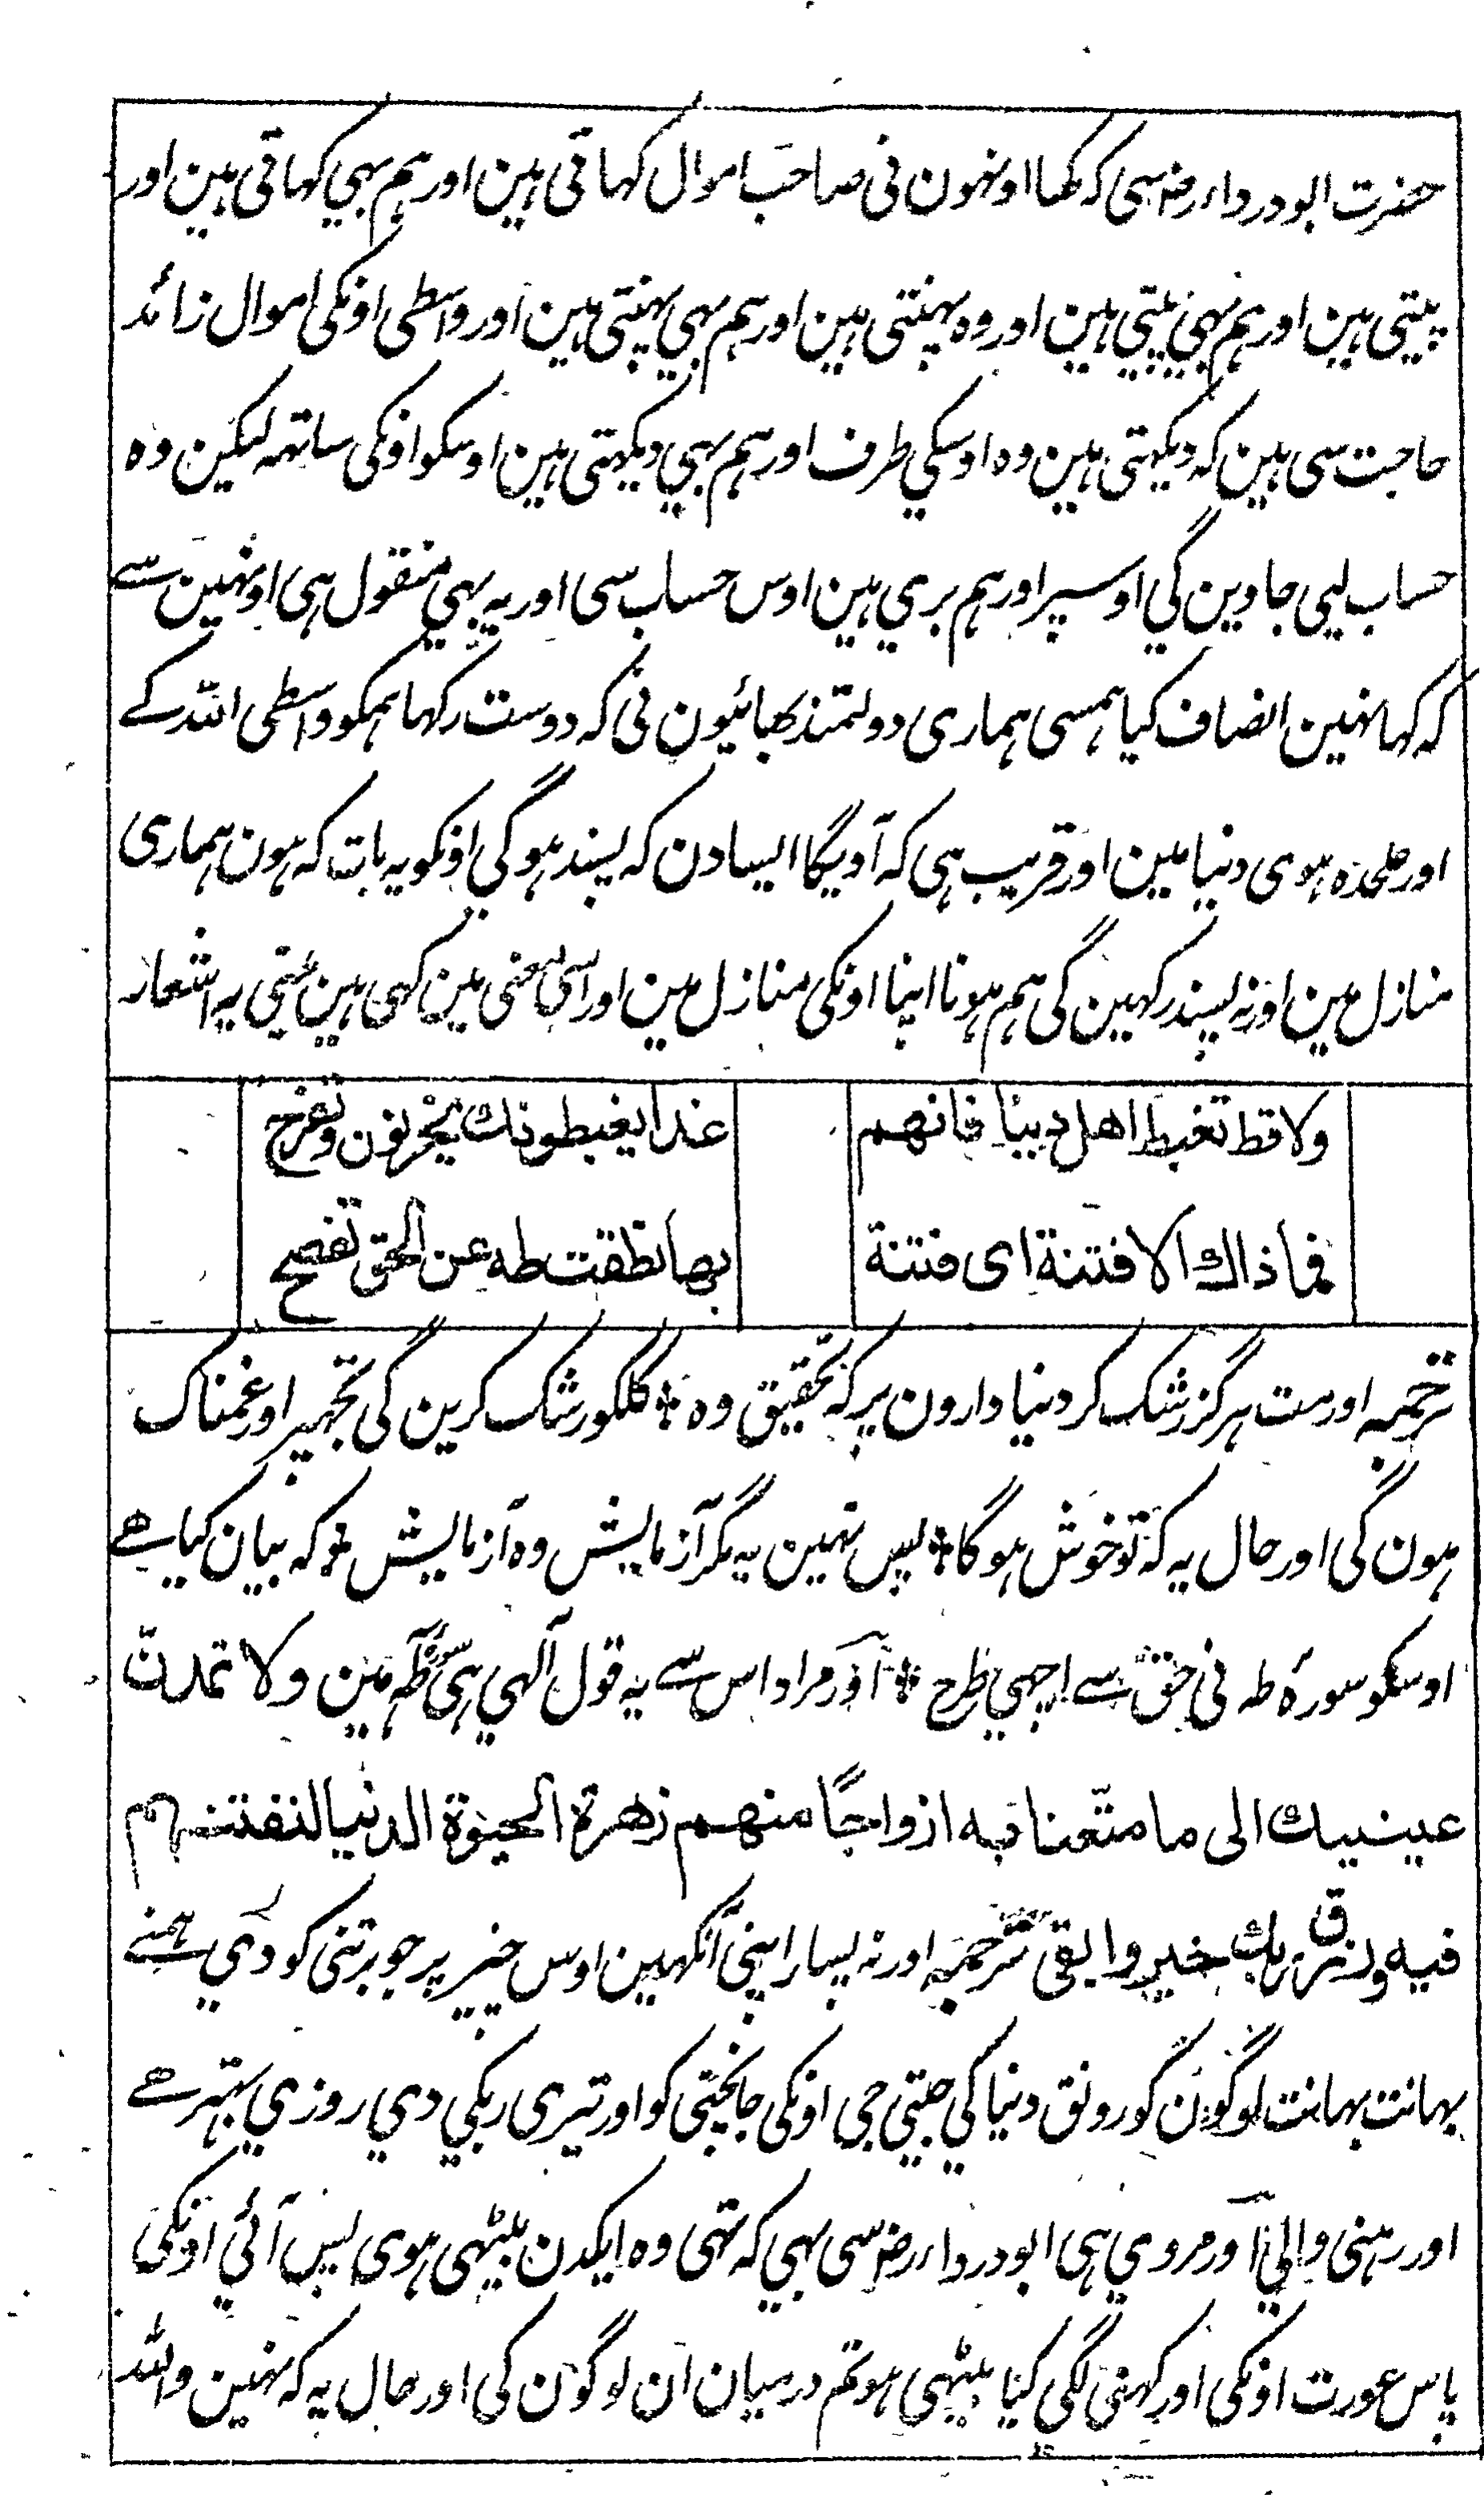 حضرت ابو دردا رض سی کہ کھا اونہون نی صاحب اموال کہاتی ہین اور ہم بہی کہاتی ہین اور
پیتی ہین اور ہم بہی پیتی ہین اور وہ پہنتی ہین اور ہم بہی پہنتی ہین اور واسطی اونکی اموال زائد
حاجت سی ہین کہ دیکہتی ہین وہ اوسکی طرف اور ہم بہی دیکہتی ہین اوسکو اونکی ساتہہ لیکن وہ
حساب لیی جاوین گی اوسپر اور ہم بری ہین اوس حساب سی اور یہ بہی منقول ہی اونہین سے
کہ کہا نہین انصاف کیا ہمسی ہماری دولتمند بھائیون نی کہ دوست رکہا ہمکو واسطی اللہ کے
اور علحدہ ہوی دنیا مین اور قریب ہی کہ آویگا ایسا دن کہ پسند ہوگی اونکو یہ بات کہ ہون ہماری
منازل مین اور نہ پسند رکہین گی ہم ہونا اپنا اونکی منازل مین اور اسی معنی مین کہی ہین مینی یہ اشعار
ولا قط تغبط اهل دنیا فانهم غدا یغبطونك یحزنون وتفرح
فما ذاك الا فتنة ای فتنة بها نطقت طه عن الحق تفصح
ترجمہ اور مت ہرگز رشک کر دنیا دارون پر کہ تحقیق وہ ؞ کلکو رشک کرین گی تجہپر اور غمناک
ہون گی اور حال یہ کہ تو خوش ہوگا ؞ پس نہین یہ مگر آزمایش وہ آزمایش ؞ کہ بیان کیا ہے
اوسکو سورۂ طہ نی حق سے اچہی طرح ؞ اور مراد اس سے یہ قول الٰہی ہی سورۂ طٰہٰ مین ولا تمدنّ
عینیك الی ما متّعنا به ازواجًا منهم زهرة الحیوة الدنیا لنفتنهم
فیه ورزق ربك خیر وابقی ترجمہ اور نہ پسار اپنی آنکہین اوس چیز پر جو برتنی کو دی ہمنے
بہانت بہانت لوگون کو رونق دنیا کی جیتی جی اونکی جانچنی کو اور تیری ربکی دی روزی بہتر ہے
اور رہنی والی اور مروی ہی ابو دردا رض سی بہی کہ تہی وہ ایکدن بیٹہی ہوی پس آئی اونکی
پاس عورت اونکی اور کہنی لگی کیا بیٹہی ہو تم درمیان ان لوگون کی اور حال یہ کہ نہین واللہ